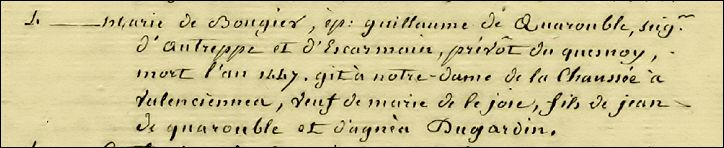 4 — Marie de Bougier, ép: guillaume de Quarouble, seig.r
d'Autreppe et d'Escarmain, prévôt du quesnoy,
mort l'an 1447. git à notre-dame de la Chaussée à
valenciennes, veuf de marie de le joie, fils de jean
de quarouble et d'agnès Dugardin.